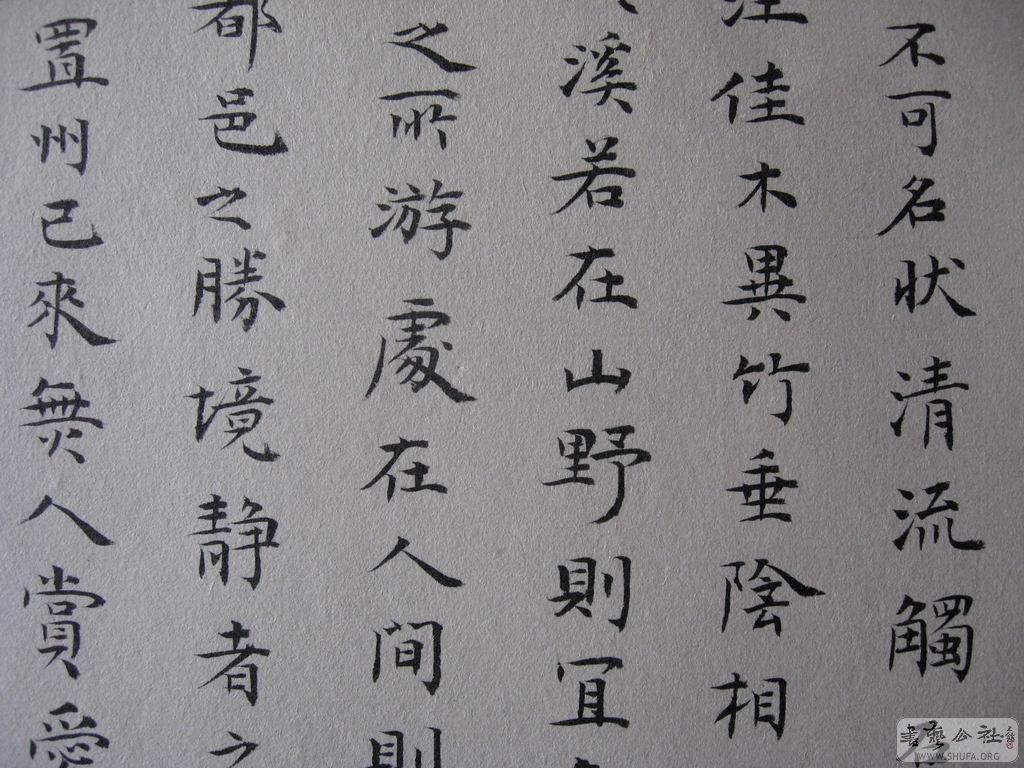 不可名状清流觸
佳木異竹垂陰相
溪若在山野則宜
之所游處在人間則
都邑之勝境静者之
置州已來無人賞愛
書藝公社
WWW.SHUFA.ORG